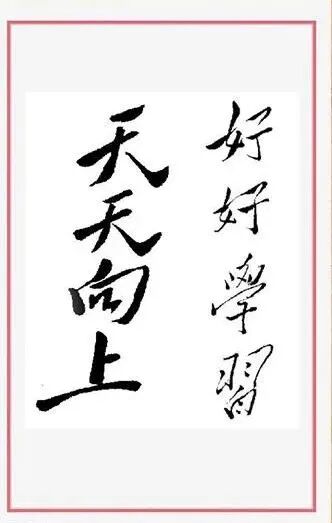 好好學習
天天向上